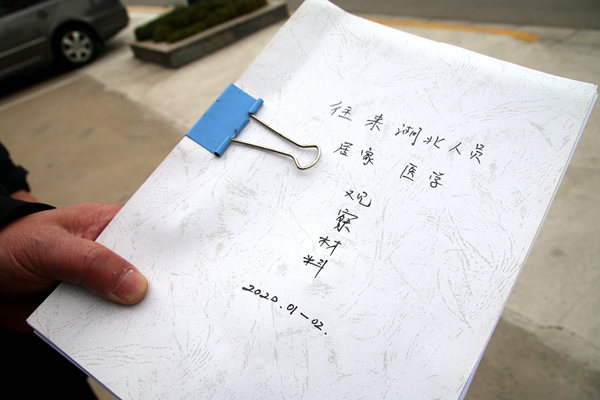 往来湖北人员
居家 医学
观
察
材
料
2020.01-02.